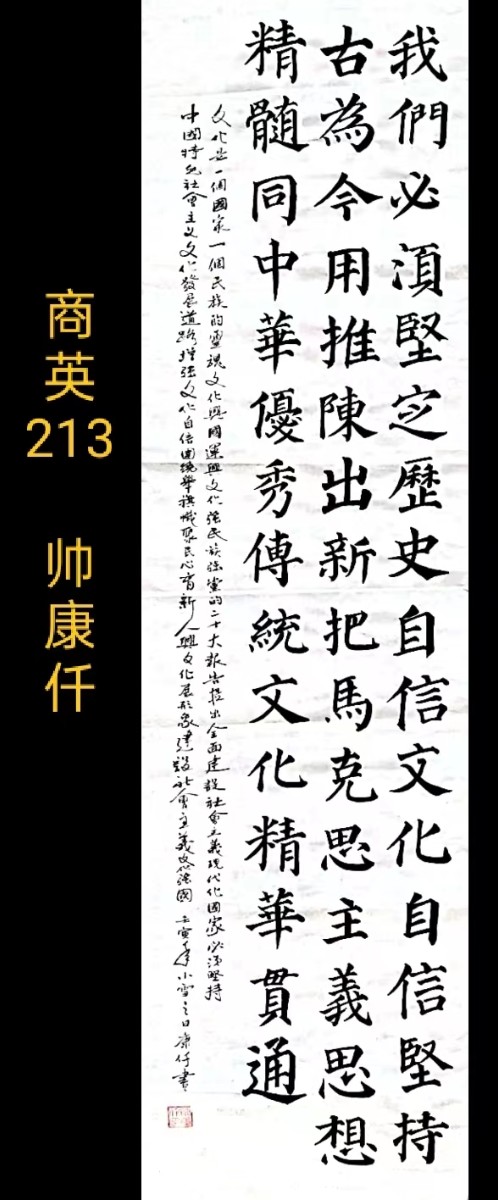 我們必須堅定歷史自信文化自信堅持
古為今用推陳出新把馬克思主義思想
精髓同中華優秀傳統文化精華貫通
文化是一個國家一個民族的靈魂文化興國運興文化強民族強黨的二十大報告提出全面建設社會主義現代化國家必須堅持
中國特色社會主義文化發展道路增強文化自信圍繞舉旗幟聚民心育新人興文化展形象建設社會主義文化強國 壬寅年小雪之日康仟書
商英
213
帅康仟